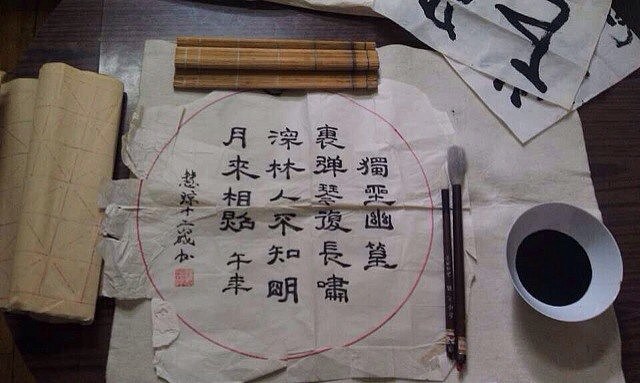 獨坐幽篁
裏弹琴復長嘯
深林人不知明
月来相照 午年
歲书